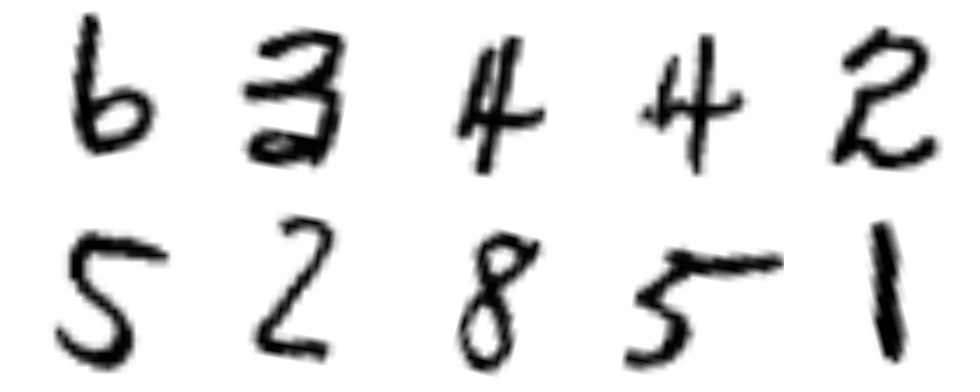 6 3 4 4 2
5 2 8 5 1